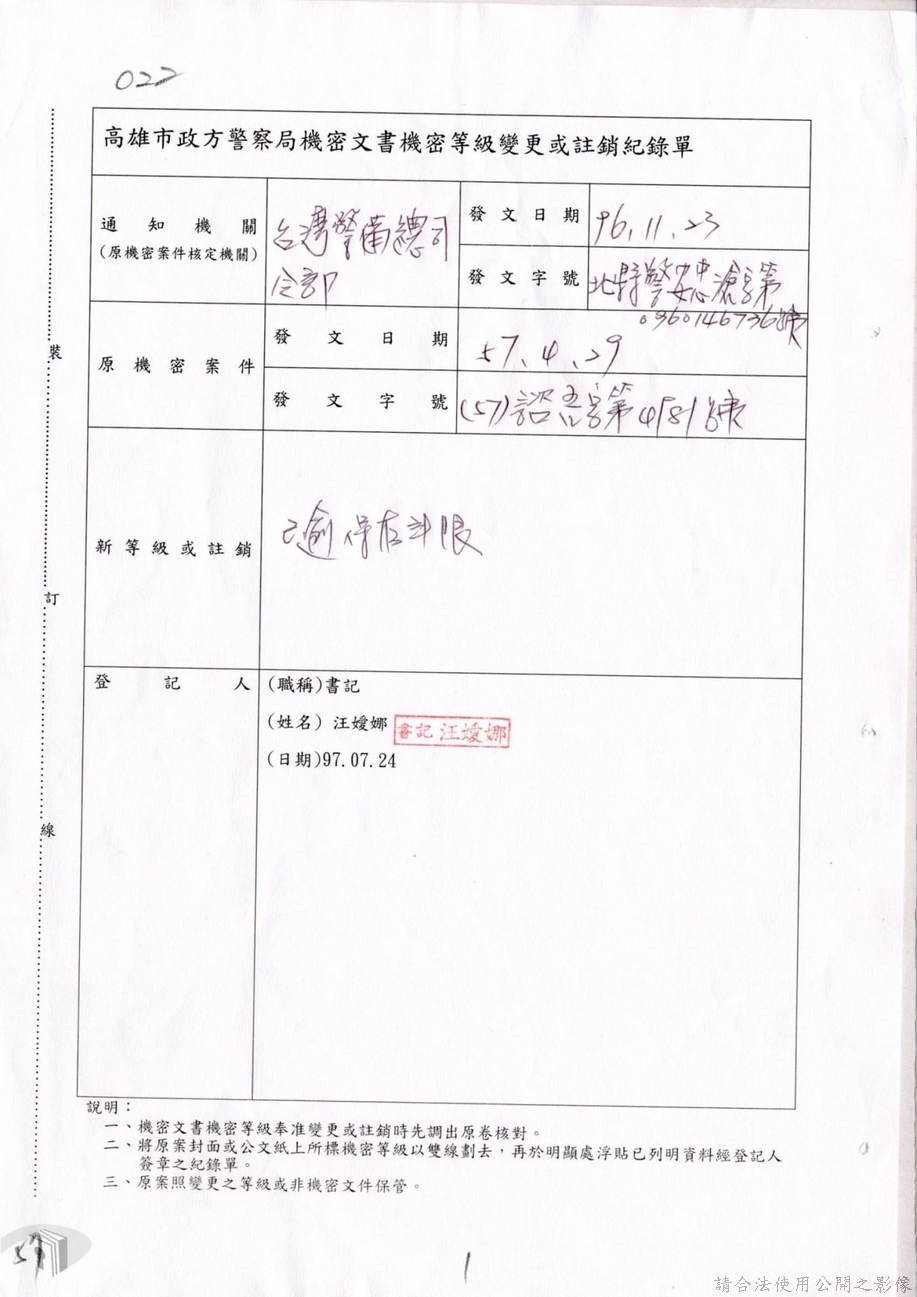 022
高雄市政方警察局機密文書機密等級變更或註銷紀錄單
通知機關
(原機密案件核定機關)
台灣警備總司
令部
發文日期
96.11.23
發文字號
北縣警
第
0960146736號
原機密案件
發文日期
57.4.29
發文字號
(57)諮吾字第4181號
新等級或註銷
已逾保存年限
登記人
(職稱)書記
(姓名) 汪嬡娜
書記 汪嬡娜
(日期)97.07.24
裝
訂
線
說明：
一、機密文書機密等級奉准變更或註銷時先調出原卷核對。
二、將原案封面或公文紙上所標機密等級以雙線劃去，再於明顯處浮貼已列明資料經登記人
簽章之紀錄單。
三、原案照變更之等級或非機密文件保管。
1
請合法使用公開之影像